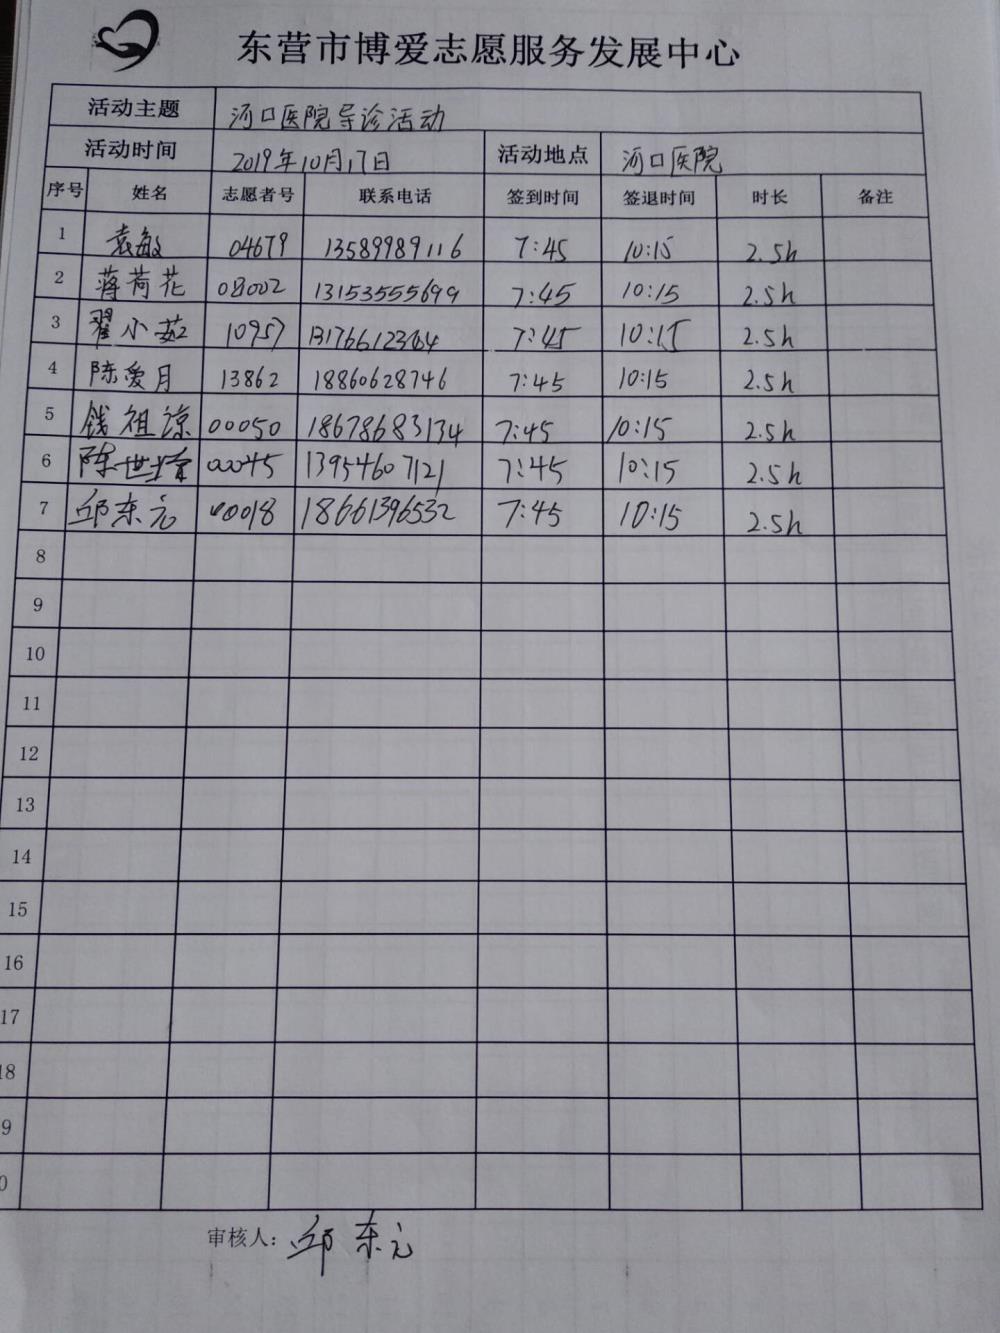 东营市博爱志愿服务发展中心
活动主题 河口医院导诊活动
活动时间 2019年10月17日 活动地点 河口医院
序号 姓名 志愿者号 联系电话 签到时间 签退时间 时长 备注
1 袁敏 04679 13589989116 7:45 10:15 2.5h
2 蒋荷花 08002 13153555699 7:45 10:15 2.5h
3 翟小茹 10957 7:45 10:15 2.5h
4 陈爱月 13862 18860628746 7:45 10:15 2.5h
5 钱祖谅 00050 18678683134 7:45 10:15 2.5h
6 陈世 00045 13954607121 7:45 10:15 2.5h
7 邱东元 00018 18661396532 7:45 10:15 2.5h
8
9
10
11
12
13
14
15
16
17
18
9
0
审核人：邱东元